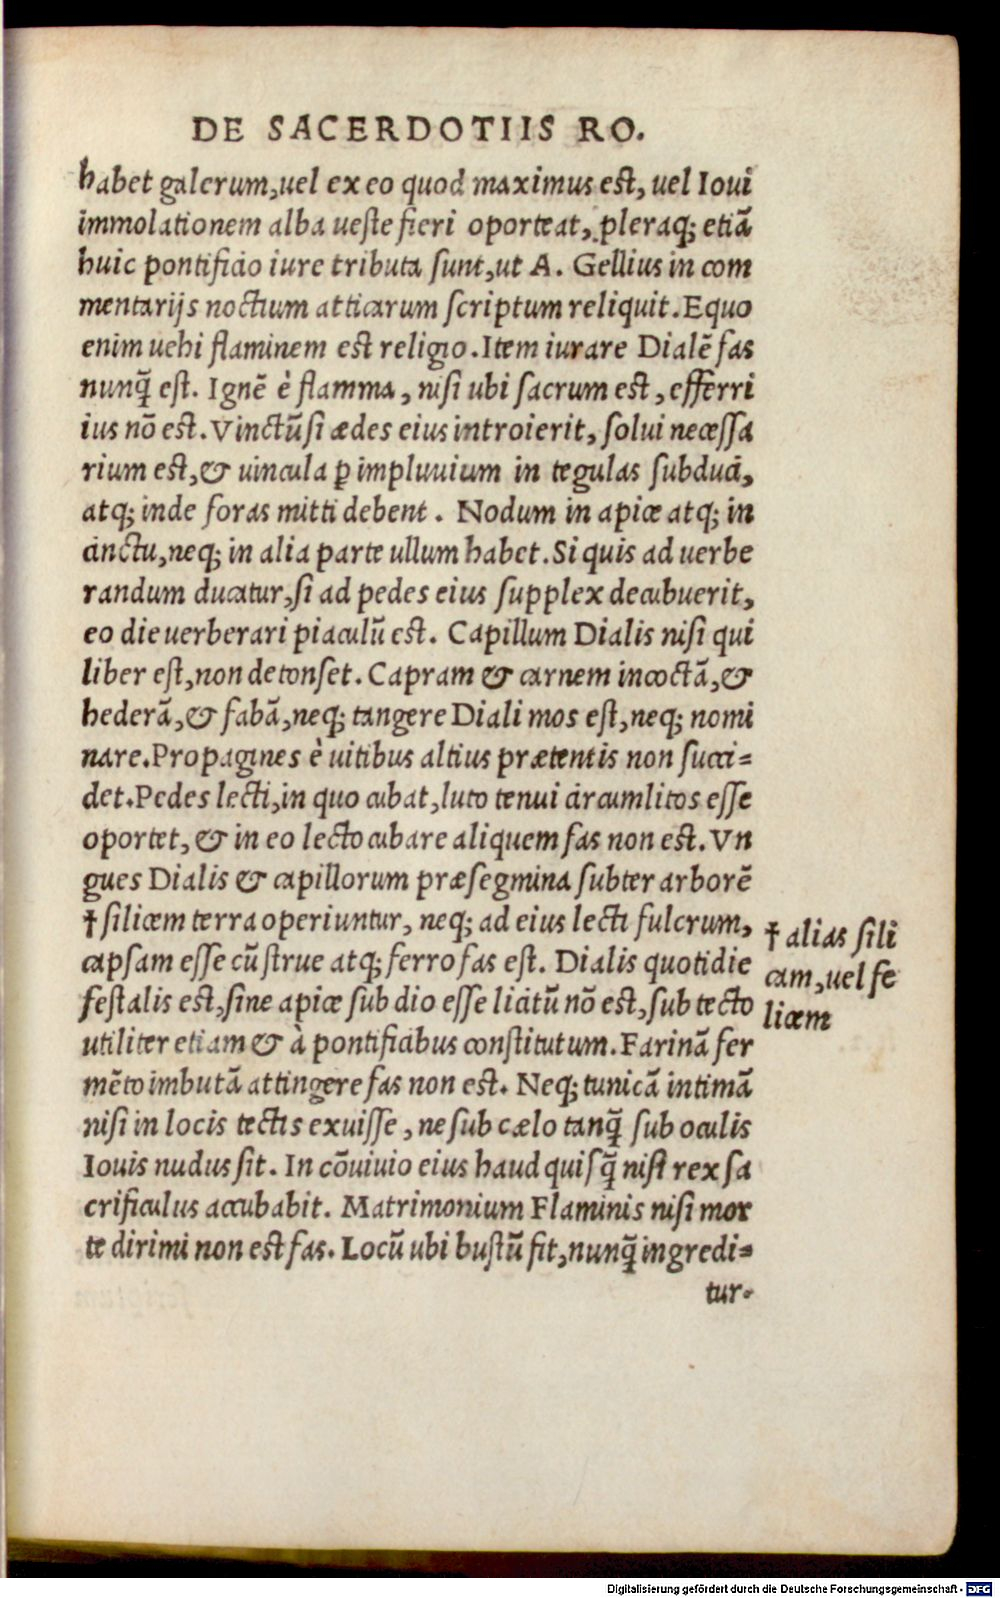 DE SACERDOTIIS RO.
habet galerum,uel ex eo quod maximus est, uel Ioui
immolationem alba ueste fieri oporteat, pleraq; etiā
huic pontificio iure tributa sunt,ut A. Gellius in com
mentarijs noctium atticarum scriptum reliquit. Equo
enim uehi flaminem est religio. Item iurare Dialē fas
nunq̄ est. Ignē è flamma, nisi ubi sacrum est, efferri
ius nō est. Vinctū si ædes eius introierit, solui necessa
rium est,& uincula ꝑ impluuium in tegulas subduci,
atq; inde foras mitti debent. Nodum in apice atq; in
cinctu,neq; in alia parte ullum habet. Si quis ad uerbe
randum ducatur,si ad pedes eius supplex decubuerit,
eo die uerberari piaculū est. Capillum Dialis nisi qui
liber est,non detonset. Capram & carnem incoctā,&
hederā,& fabā,neq; tangere Diali mos est,neq; nomi
nare. Propagines è uitibus altius prætentis non succi=
det. Pedes lecti,in quo cubat,luto tenui circumlitos esse
oportet, & in eo lecto cubare aliquem fas non est. Vn
gues Dialis & capillorum præsegmina subter arborē
† silicem terra operiuntur, neq; ad eius lecti fulcrum,
capsam esse cū strue atq; ferro fas est. Dialis quotidie
festalis est,sine apice sub dio esse licitū nō est,sub tecto
utiliter etiam & à pontificibus constitutum. Farinā fer
mēto imbutā attingere fas non est. Neq; tunicā intimā
nisi in locis tectis exuisse, ne sub cælo tanq̄ sub oculis
Iouis nudus sit. In cōuiuio eius haud quisq̄ nisi rex sa
crificulus accubabit. Matrimonium Flaminis nisi mor
te dirimi non est fas. Locū ubi bustū fit,nunq̄ ingredi=
tur.
† alias sili
cam,uel fe
licem
Digitalisierung gefördert durch die Deutsche Forschungsgemeinschaft - DFG